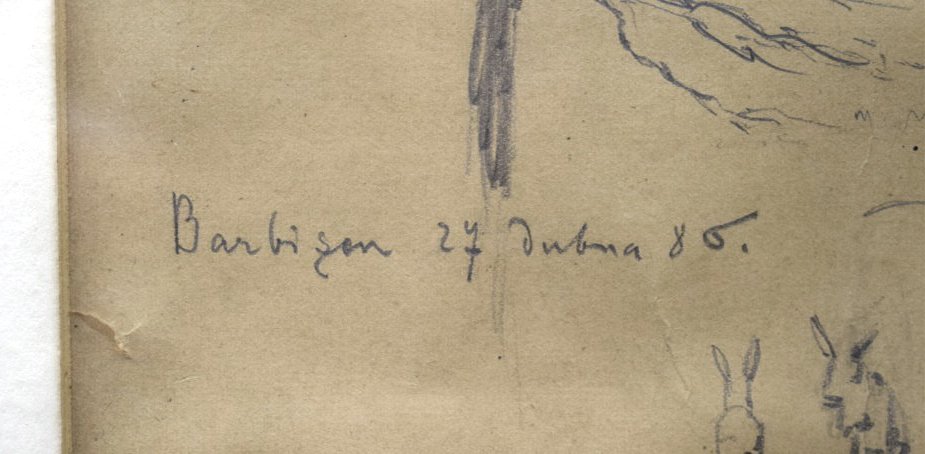 Barbizon 27 dubna 85.